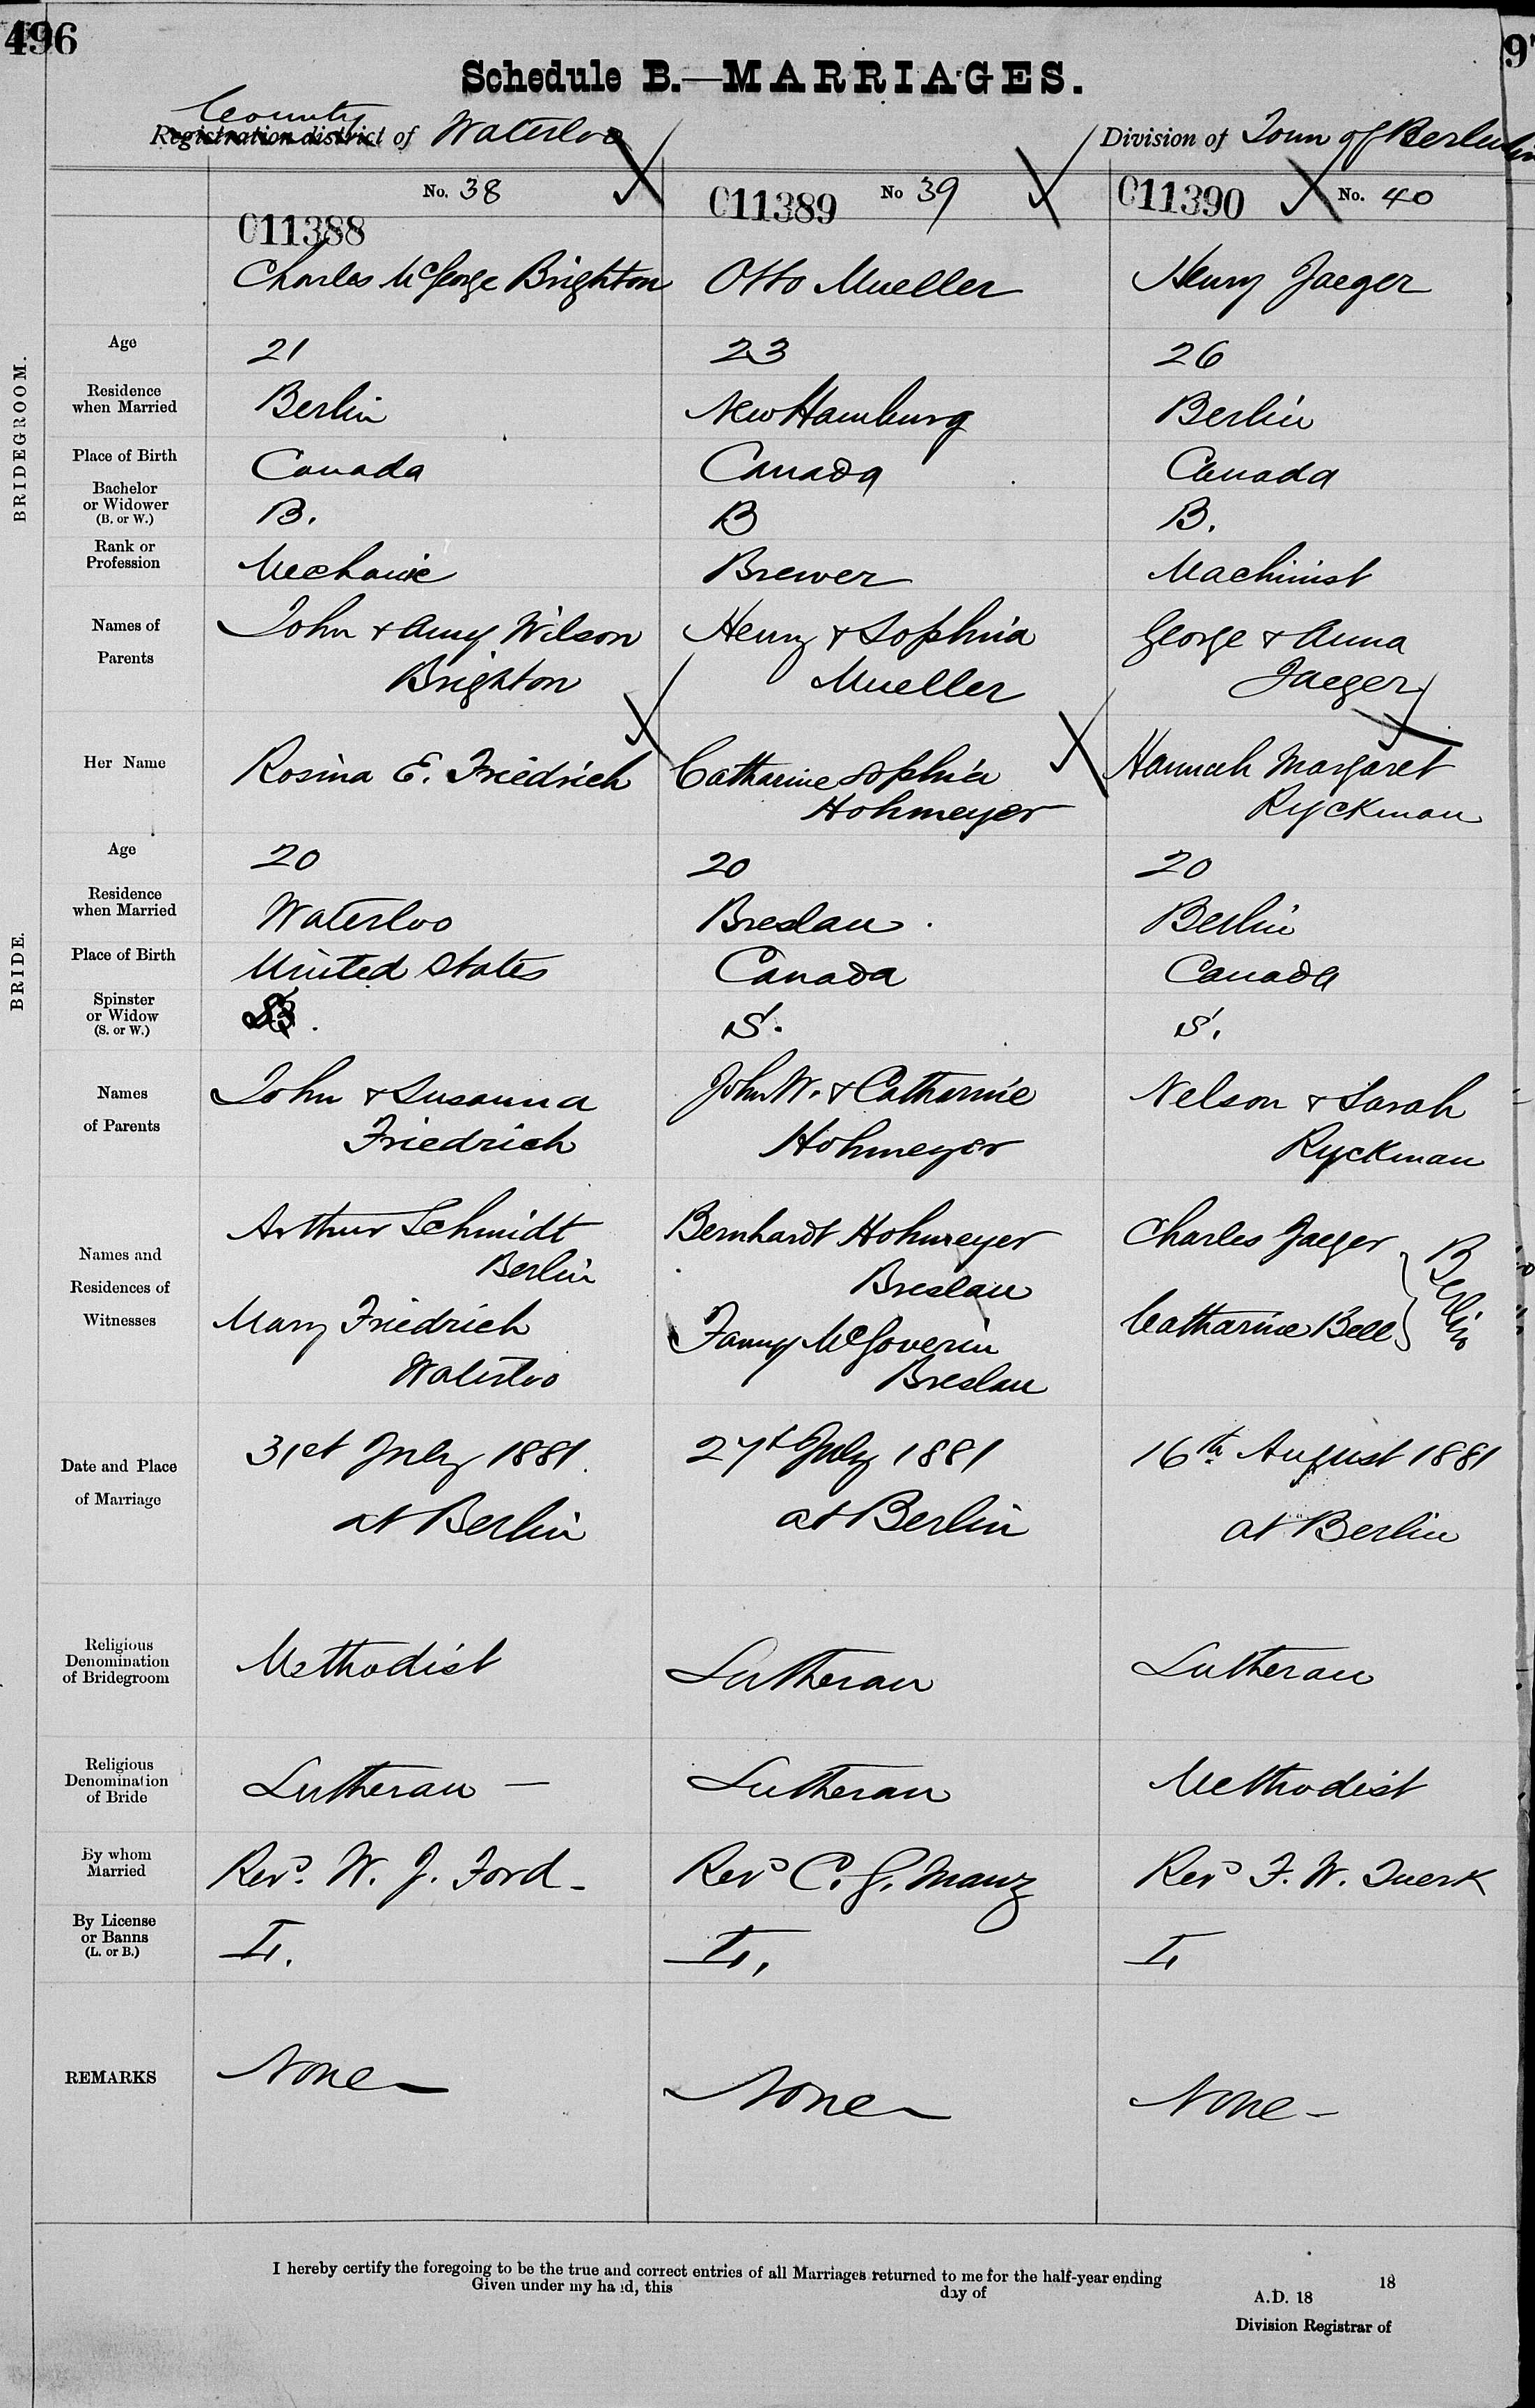 496
Schedule B.—MARRIAGES.
County
Registration district of Waterloo
Division of Town of Berlin
No. 38
No 39
No. 40
011388
011389
011390
BRIDEGROOM.
Charles McGeorge Brighton
Otto Mueller
Henry Jaeger
Age
21
23
26
Residence
when Married
Berlin
New Hamburg
Berlin
Place of Birth
Canada
Canada
Canada
Bachelor
or Widower
(B. or W.)
B.
B
B.
Rank or
Profession
Mechanic
Brewer
Machinist
Names of
Parents
John & Amy Wilson
Brighton
Henry & Sophia
Mueller
George & Anna
Jaeger
BRIDE.
Her Name
Rosina E. Friedrich
Catharine Sophia
Hohmeyer
Hannah Margaret
Ryckman
Age
20
20
20
Residence
when Married
Waterloo
Breslau.
Berlin
Place of Birth
United States
Canada
Canada
Spinster
or Widow
(S. or W.)
S.
S.
Names
of Parents
John & Susanna
Friedrich
John W. & Catharine
Hohmeyer
Nelson & Sarah
Ryckman
Names and
Residences of
Witnesses
Arthur Schmidt
Berlin
Mary Friedrich
Waterloo
Bernhardt Hohmeyer
Breslau
Fanny McGoverin
Breslau
Charles Jaeger
Catharine Bell
Berlin
Date and Place
of Marriage
31st July 1881.
at Berlin
27th July 1881
at Berlin
16th August 1881
at Berlin
Religious
Denomination
of Bridegroom
Methodist
Lutheran
Lutheran
Religious
Denomination
of Bride
Lutheran —
Lutheran
Methodist
By whom
Married
Revd. W. J. Ford -
Revd C. G. Manz
Revd F. W. Tuerk
By License
or Banns
(L. or B.)
L.
L.
L
REMARKS
None
None
None -
I hereby certify the foregoing to be the true and correct entries of all Marriages returned to me for the half-year ending 18
Given under my hand, this day of A.D. 18
Division Registrar of